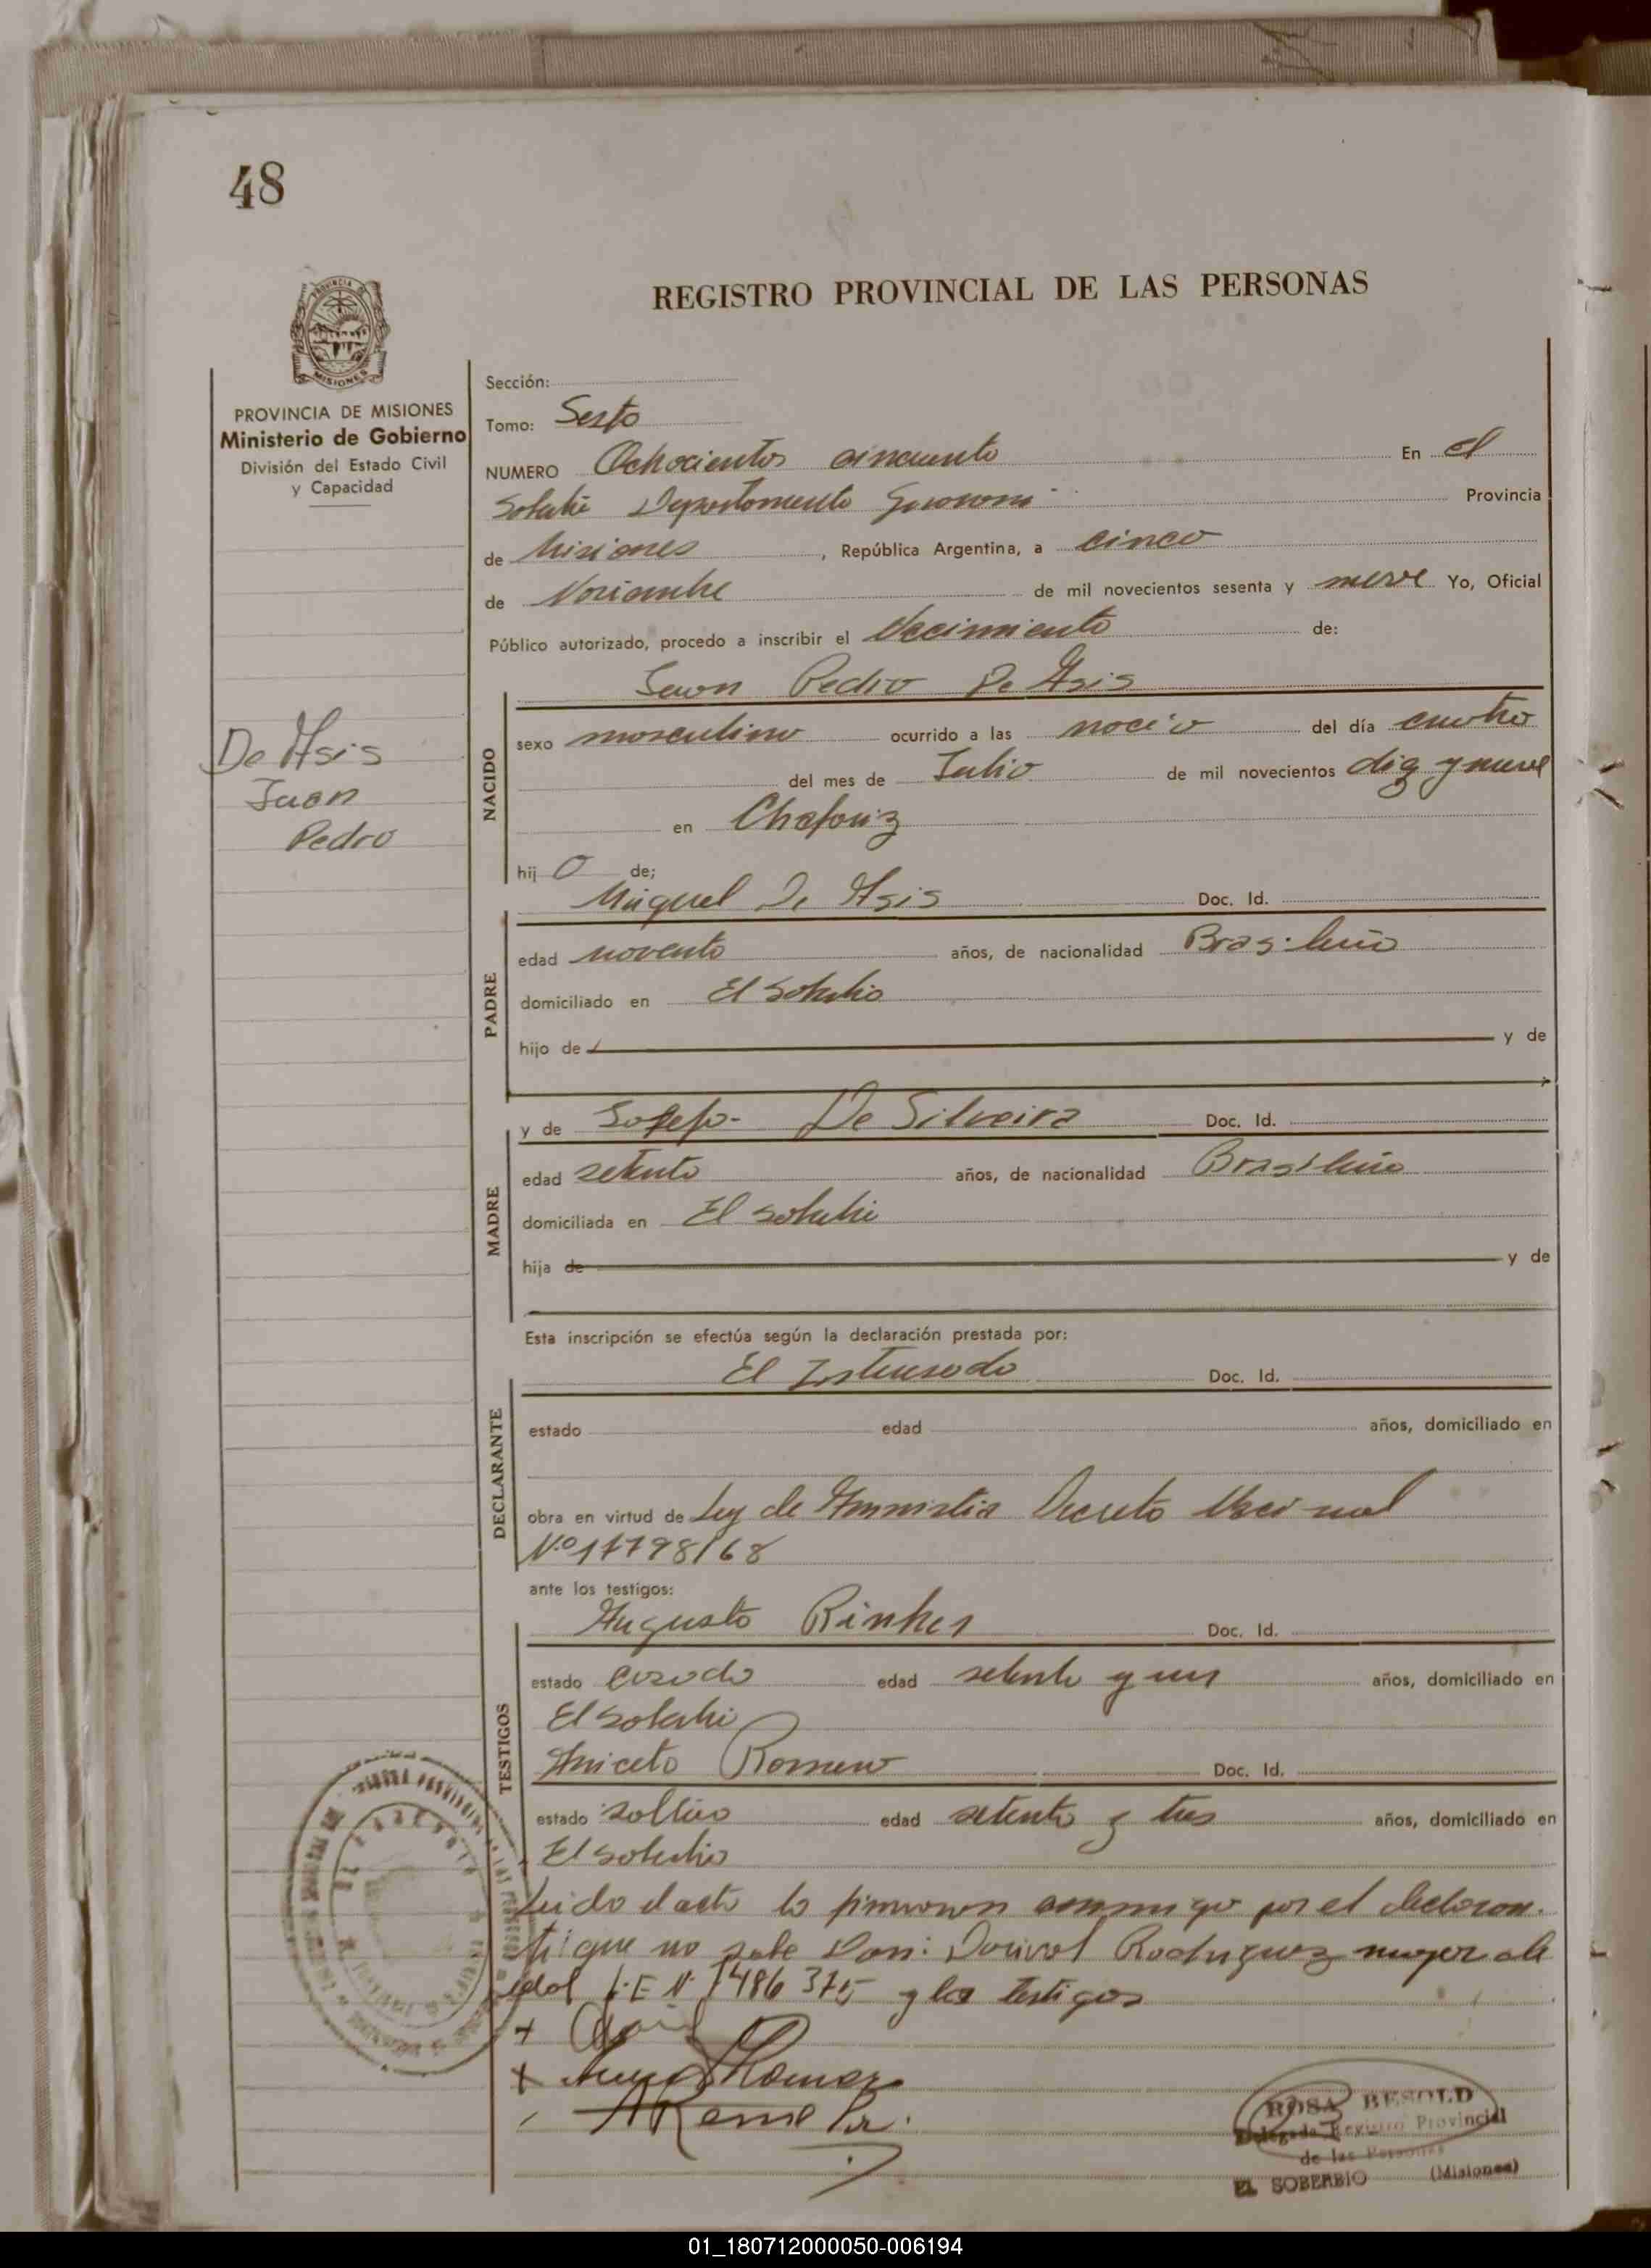 48
REGISTRO PROVINCIAL DE LAS PERSONAS
PROVINCIA DE MISIONES
Ministerio de Gobierno
División del Estado Civil
y Capacidad
De Asis
Juan
Pedro
Sección:
Tomo: Sesto
NUMERO Ochocientos cincuenta En El
Soberbio Departamento Guarani Provincia
de Misiones, República Argentina, a cinco
de Noviembre de mil novecientos sesenta y nueve Yo, Oficial
Público autorizado, procedo a inscribir el Nacimiento de:
Juan Pedro De Asis
NACIDO
sexo masculino ocurrido a las nació del día cuatro
del mes de Julio de mil novecientos diez y nueve
en
hij o de;
Miguel De Asis Doc. Id.
PADRE
edad noventa años, de nacionalidad Brasileño
domiciliado en El Soberbio
hijo de y de
y de Josefa De Silveira Doc. Id.
MADRE
edad setenta años, de nacionalidad Brasileña
domiciliada en El Soberbio
hija de y de
Esta inscripción se efectúa según la declaración prestada por:
El Doc. Id.
DECLARANTE
estado edad años, domiciliado en
obra en virtud de Ley de Amnistia Decreto Nacional
Nº 17798/68
ante los testigos:
Augusto Doc. Id.
TESTIGOS
estado casado edad setenta y un años, domiciliado en
El Soberbio
Aniceto Romero Doc. Id.
estado soltero edad setenta y tres años, domiciliado en
El Soberbio
Leido el acta la firmaron conmigo por el declaran-
te que no sabe Don: Rodriguez mayor de
edad L.E N. 7486 375 y los testigos
ROSA BESOLD
Delegada Registro Provincial
de las Personas
EL SOBERBIO (Misiones)
01_180712000050-006194